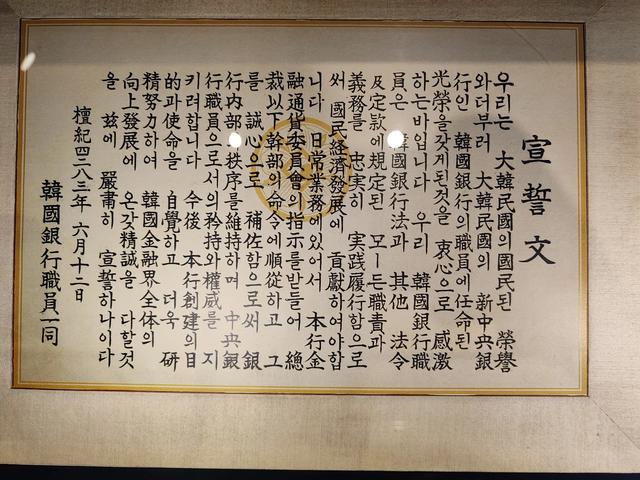 宣誓文
우리는 大韓民國의 國民된 榮譽
와더부러 大韓民國의 新中央銀
行인 韓國銀行의 職員에 任命된
光榮을갖게된것을 衷心으로 感激
하는바입니다 우리 韓國銀行職
員은 韓國銀行法과 其他 法令
及定款에規定된 모ー든職責과
義務를 忠実히 実践履行함으로
써 國民経済發展에 貢獻하여야함
니다 日常業務에있어서 本行金
融通貨委員會의指示를받들어 總
裁以下幹部의命令에順從하고 그
를 誠心으로 補佐함으로써 銀
行内部 秩序를維持하며 中央銀
行職員으로서의矜持와權威를 지
키려합니다 今後 本行創建의目
的과使命을 自覺하고 더욱 研
精努力하여 韓國金融界全体의
向上發展에 온갖精誠을 다할것
을 玆에 嚴肅히 宣誓하나이다
檀紀四二八三年 六月十二日
韓國銀行職員一同